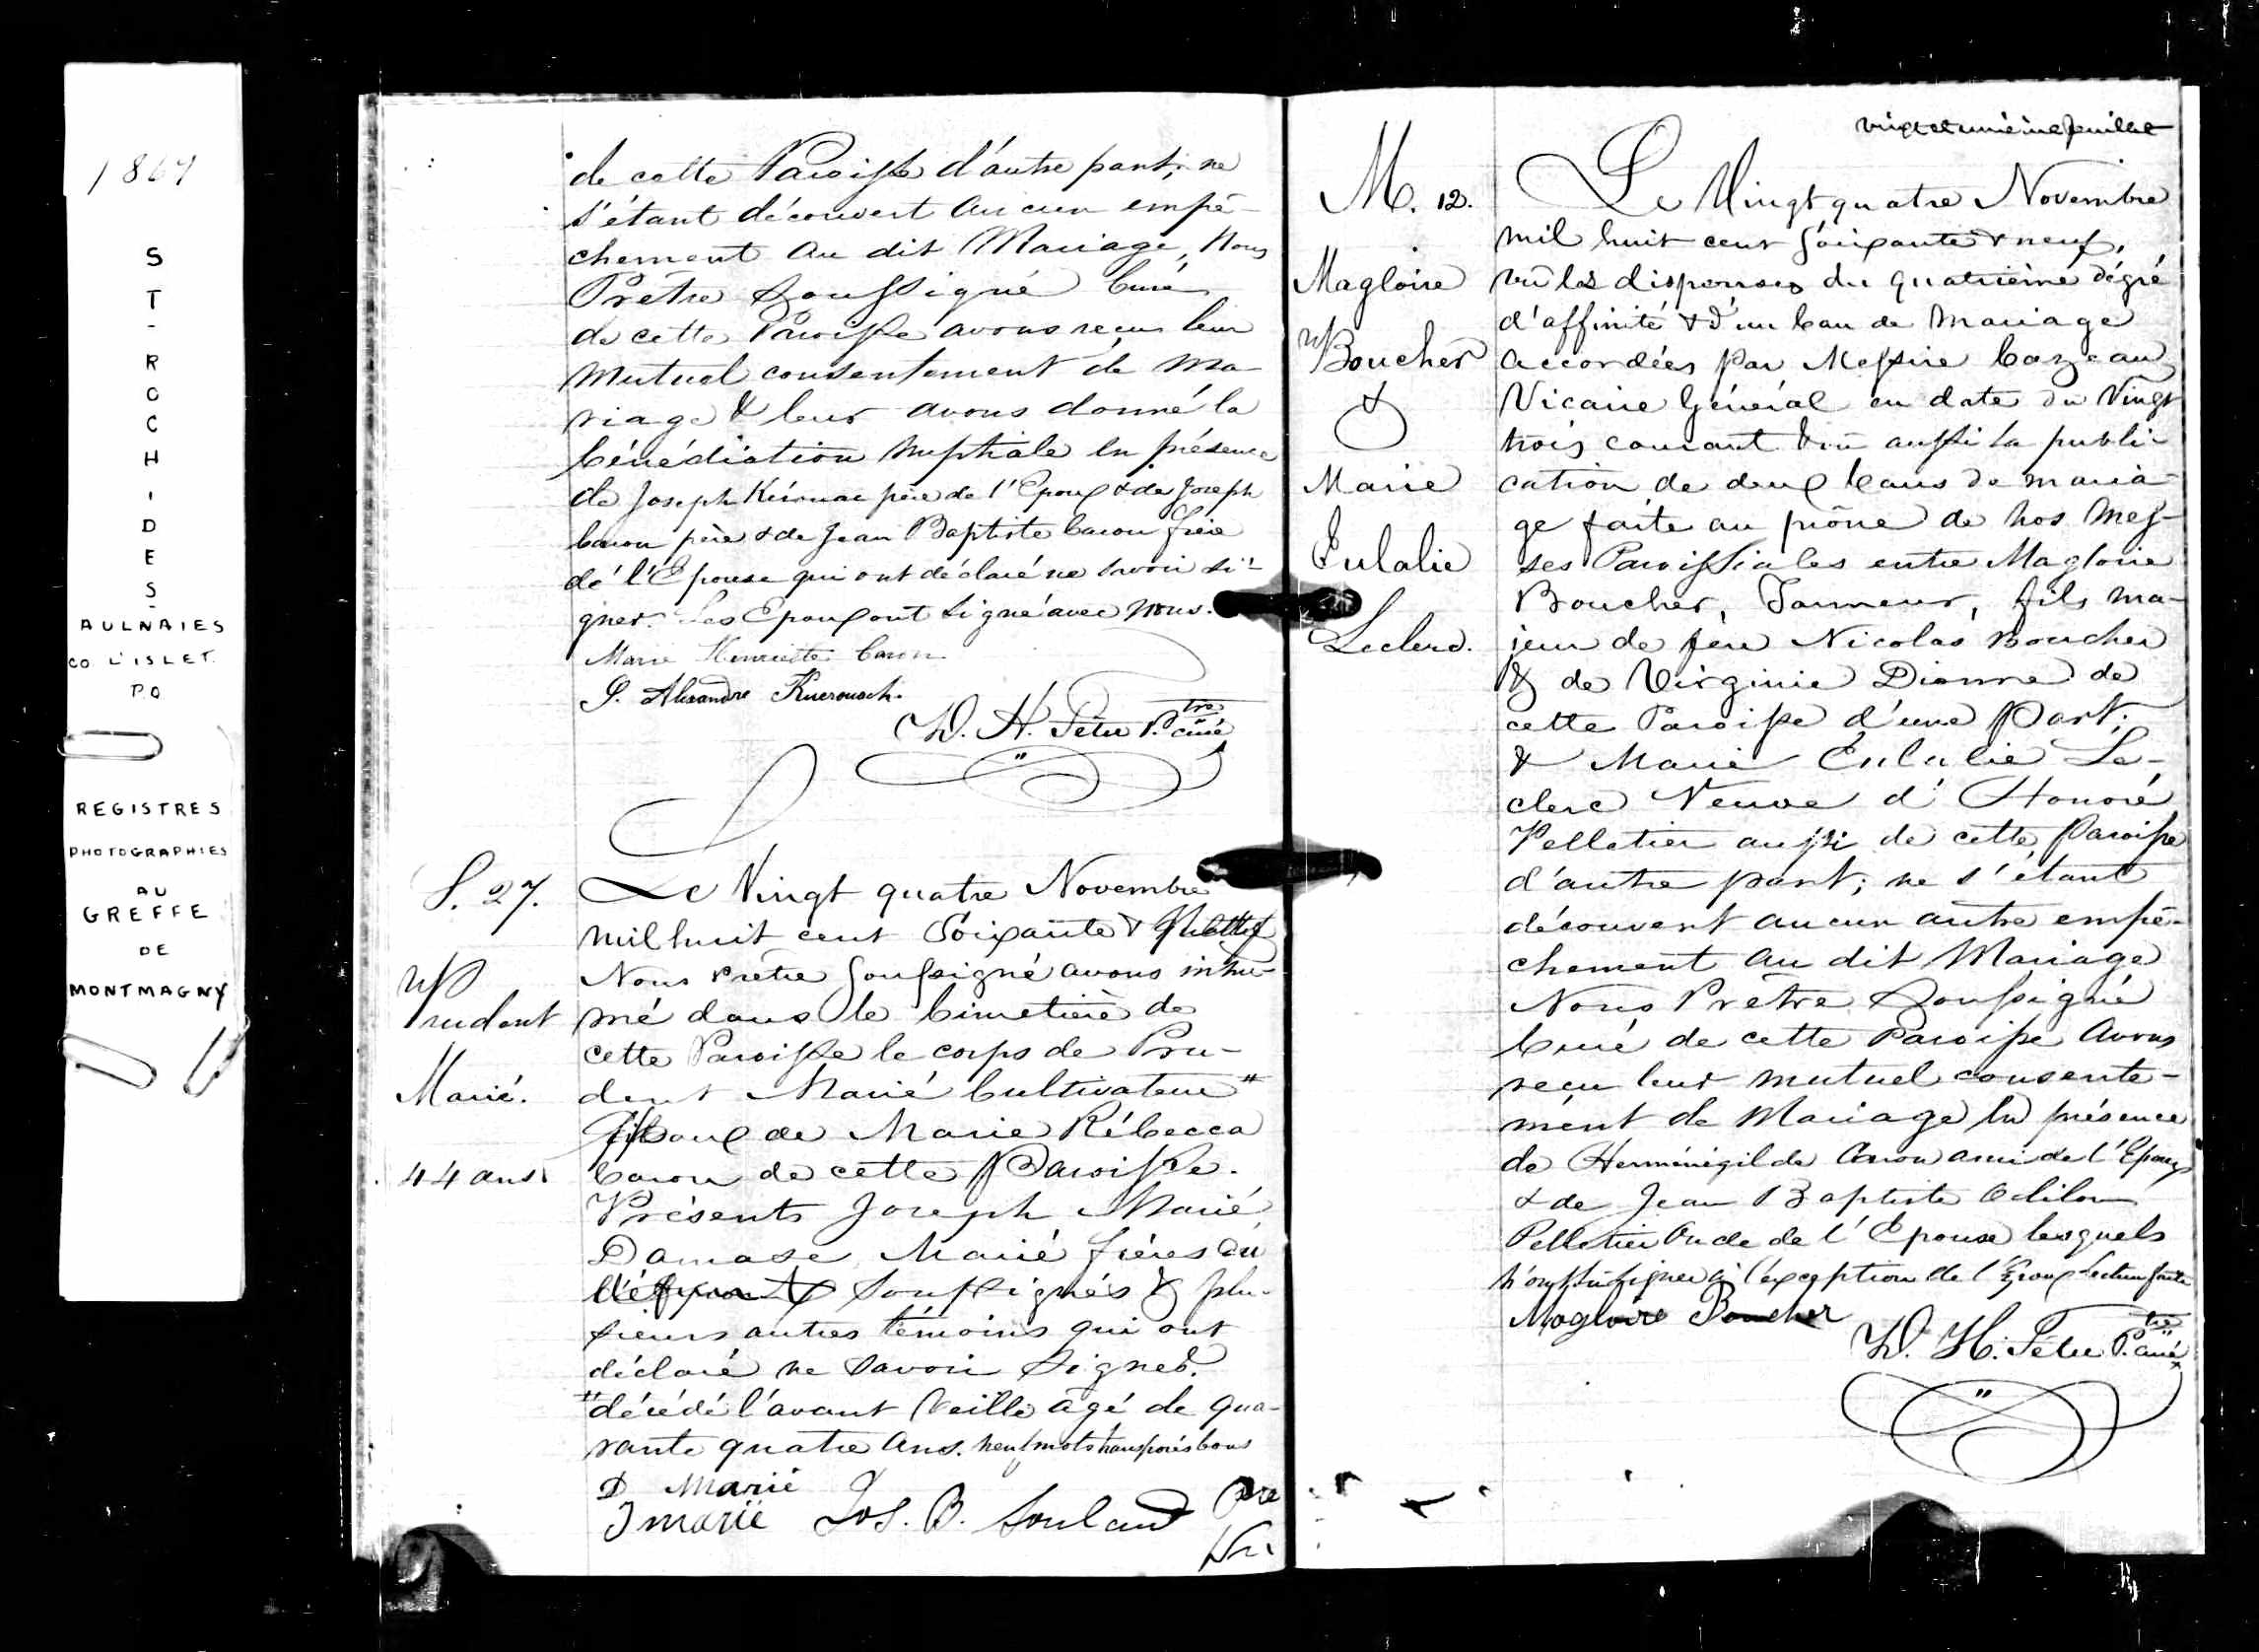 1869
ST-ROCH-DES-
AULNAIES
CO L'ISLET.
P.Q
REGISTRES
PHOTOGRAPHIES
AU
GREFFE
DE
MONTMAGNY
de cette Paroisse d'autre part; ne
s'étant découvert aucun empê-
chement au dit Mariage, Nous
Prêtre Soussigné Curé
de cette Paroisse avons reçu leur
mutuel consentement de ma-
riage & leur avons donné la
bénédiction nuptiale en présence
de Joseph Kérouac père de l'Epoux & de Joseph
Caron père & de Jean Baptiste Caron frère
de l'Epouse qui ont déclaré ne savoir si-
gner. Les Epoux ont signé avec nous.
Marie Henriette Caron
J. Alexandre Kuerouack.
D. H. Têtu Ptre curé
S. 27.
Prudent
Marié.
44 ans
Le Vingt quatre Novembre
mil huit cent soixante &
Nous Prêtre soussigné avons inhu-
mé dans le Cimetière de
cette Paroisse le corps de Pru-
dent Marié Cultivateur "
Epoux de Marie Rébecca
Caron de cette Paroisse.
Présents Joseph Marié,
Damase Marié frères du
défunt soussignés & plu-
sieurs autres témoins qui ont
déclaré ne savoir signer.
" décédé l'avant veille âgé de qua-
rante quatre ans. neuf mots transposés bons
D Marié
J Marié Jos. B. Soulard Ptre
Vic
vingt et unième feuillet
M. 12.
Magloire
Boucher
&
Marie
Eulalie
Leclerc.
Le Vingt quatre Novembre
mil huit cent soixante & neuf,
vu les dispenses du quatrième dégré
d'affinité & d'un ban de Mariage
accordées par Messire Cazeau
Vicaire Général en date du Vingt
trois courant & vu aussi la publi-
cation de deux bans de maria-
ge faite au prône de nos Mes-
ses Paroissiales entre Magloire
Boucher, Tanneur, fils ma-
jeur de feu Nicolas Boucher
& de Virginie Dionne de
cette Paroisse d'une Part;
& Marie Eulalie Le-
clerc Veuve d'Honoré
Pelletier aussi de cette Paroisse
d'autre part; ne s'étant
découvert aucun autre empê-
chement au dit Mariage
Nous Prêtre Soussigné
Curé de cette Paroisse avons
reçu leur mutuel consente-
ment de Mariage en présence
de Herménégilde Caron ami de l'Epoux
& de Jean Baptiste Odilon
Pelletier Oncle de l'Epouse lesquels
n'ont su signer à l'exception de l'Epoux Lecture faite
Magloire Boucher
D. H. Têtu Ptre curé